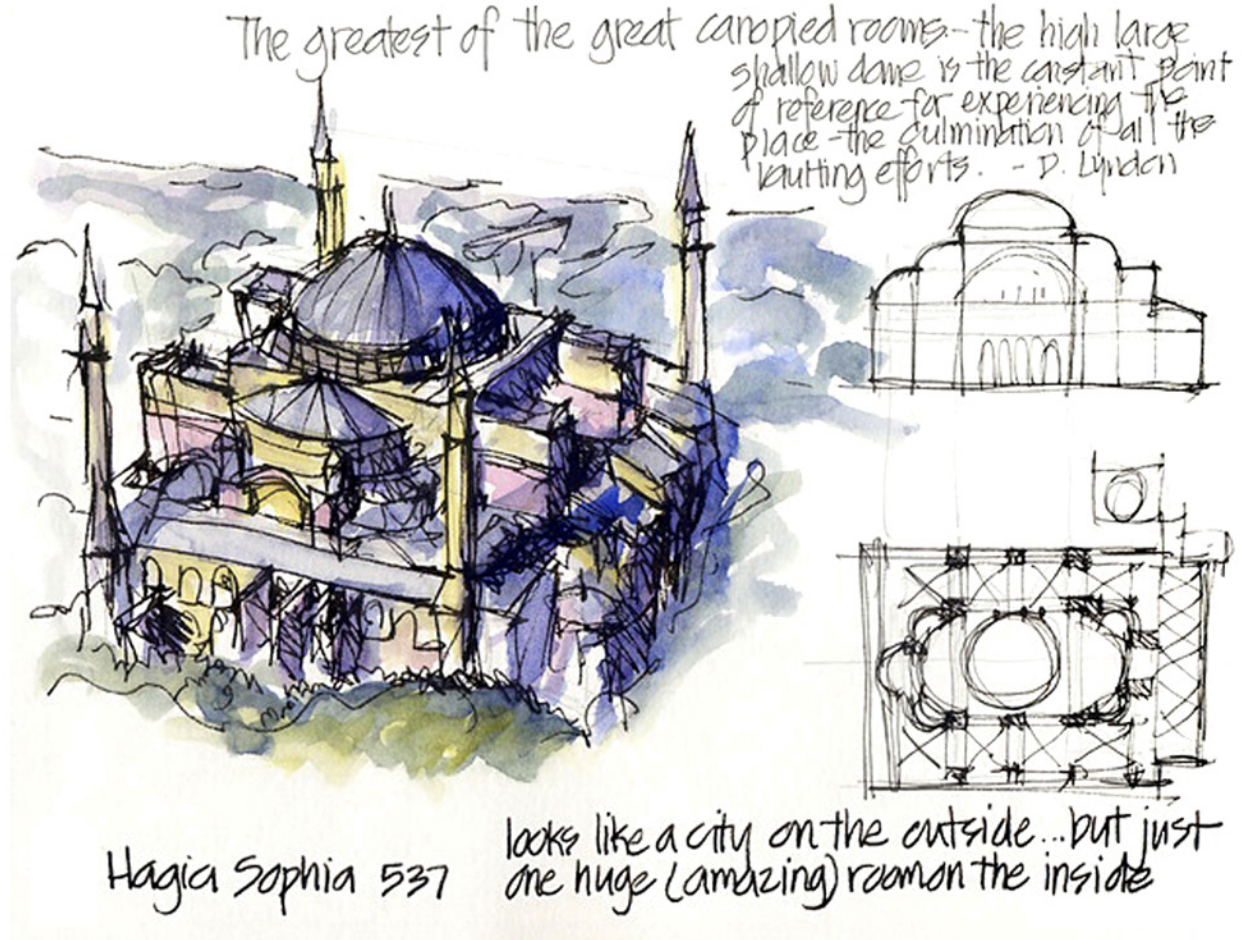 The greatest of the great canopied rooms - the high large
shallow dome is the constant point
of reference for experiencing the
place - the culmination of all the
vaulting efforts. - D. Lyndon
looks like a city on the outside...but just
Hagia Sophia 537
one huge (amazing) room on the inside